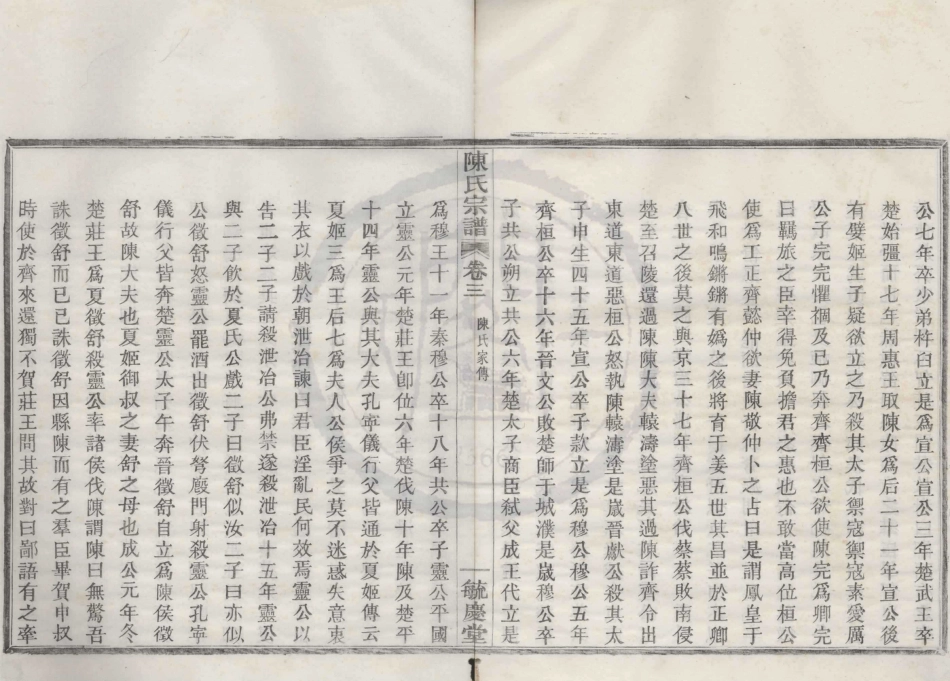 公七年卒少弟杵臼立是爲宣公宣公三年楚武王卒
楚始彊十七年周惠王取陳女爲后二十一年宣公後
有嬖姬生子疑欲立之乃殺其太子禦寇禦寇素愛厲
公子完完懼禍及己乃奔齊齊桓公欲使陳完爲卿完
曰羈旅之臣幸得免負擔君之惠也不敢當高位桓公
使爲工正齊懿仲欲妻陳敬仲卜之占曰是謂鳳皇于
飛和鳴鏘鏘有嬀之後將育于姜五世其昌並於正卿
八世之後莫之與京三十七年齊桓公伐蔡蔡敗南侵
楚至召陵還過陳陳大夫轅濤塗惡其過陳詐齊令出
東道東道惡桓公怒執陳轅濤塗是歲晉獻公殺其太
子申生四十五年宣公卒子款立是爲穆公穆公五年
齊桓公卒十六年晉文公敗楚師于城濮是歲穆公卒
子共公朔立共公六年楚太子商臣弑父成王代立是
陳氏宗譜 卷三 陳氏家傳 一 毓慶堂
爲穆王十一年秦穆公卒十八年共公卒子靈公平國
立靈公元年楚莊王卽位六年楚伐陳十年陳及楚平
十四年靈公與其大夫孔寧儀行父皆通於夏姬傳云
夏姬三爲王后七爲夫人公侯爭之莫不迷惑失意衷
其衣以戲於朝泄冶諫曰君臣淫亂民何效焉靈公以
告二子二子請殺泄冶公弗禁遂殺泄冶十五年靈公
與二子飲於夏氏公戲二子曰徵舒似汝二子曰亦似
公徵舒怒靈公罷酒出徵舒伏弩廄門射殺靈公孔寧
儀行父皆奔楚靈公太子午奔晉徵舒自立爲陳侯徵
舒故陳大夫也夏姬御叔之妻舒之母也成公元年冬
楚莊王爲夏徵舒殺靈公率諸侯伐陳謂陳曰無驚吾
誅徵舒而已已誅徵舒因縣陳而有之羣臣畢賀申叔
時使於齊來還獨不賀莊王問其故對曰鄙語有之牽